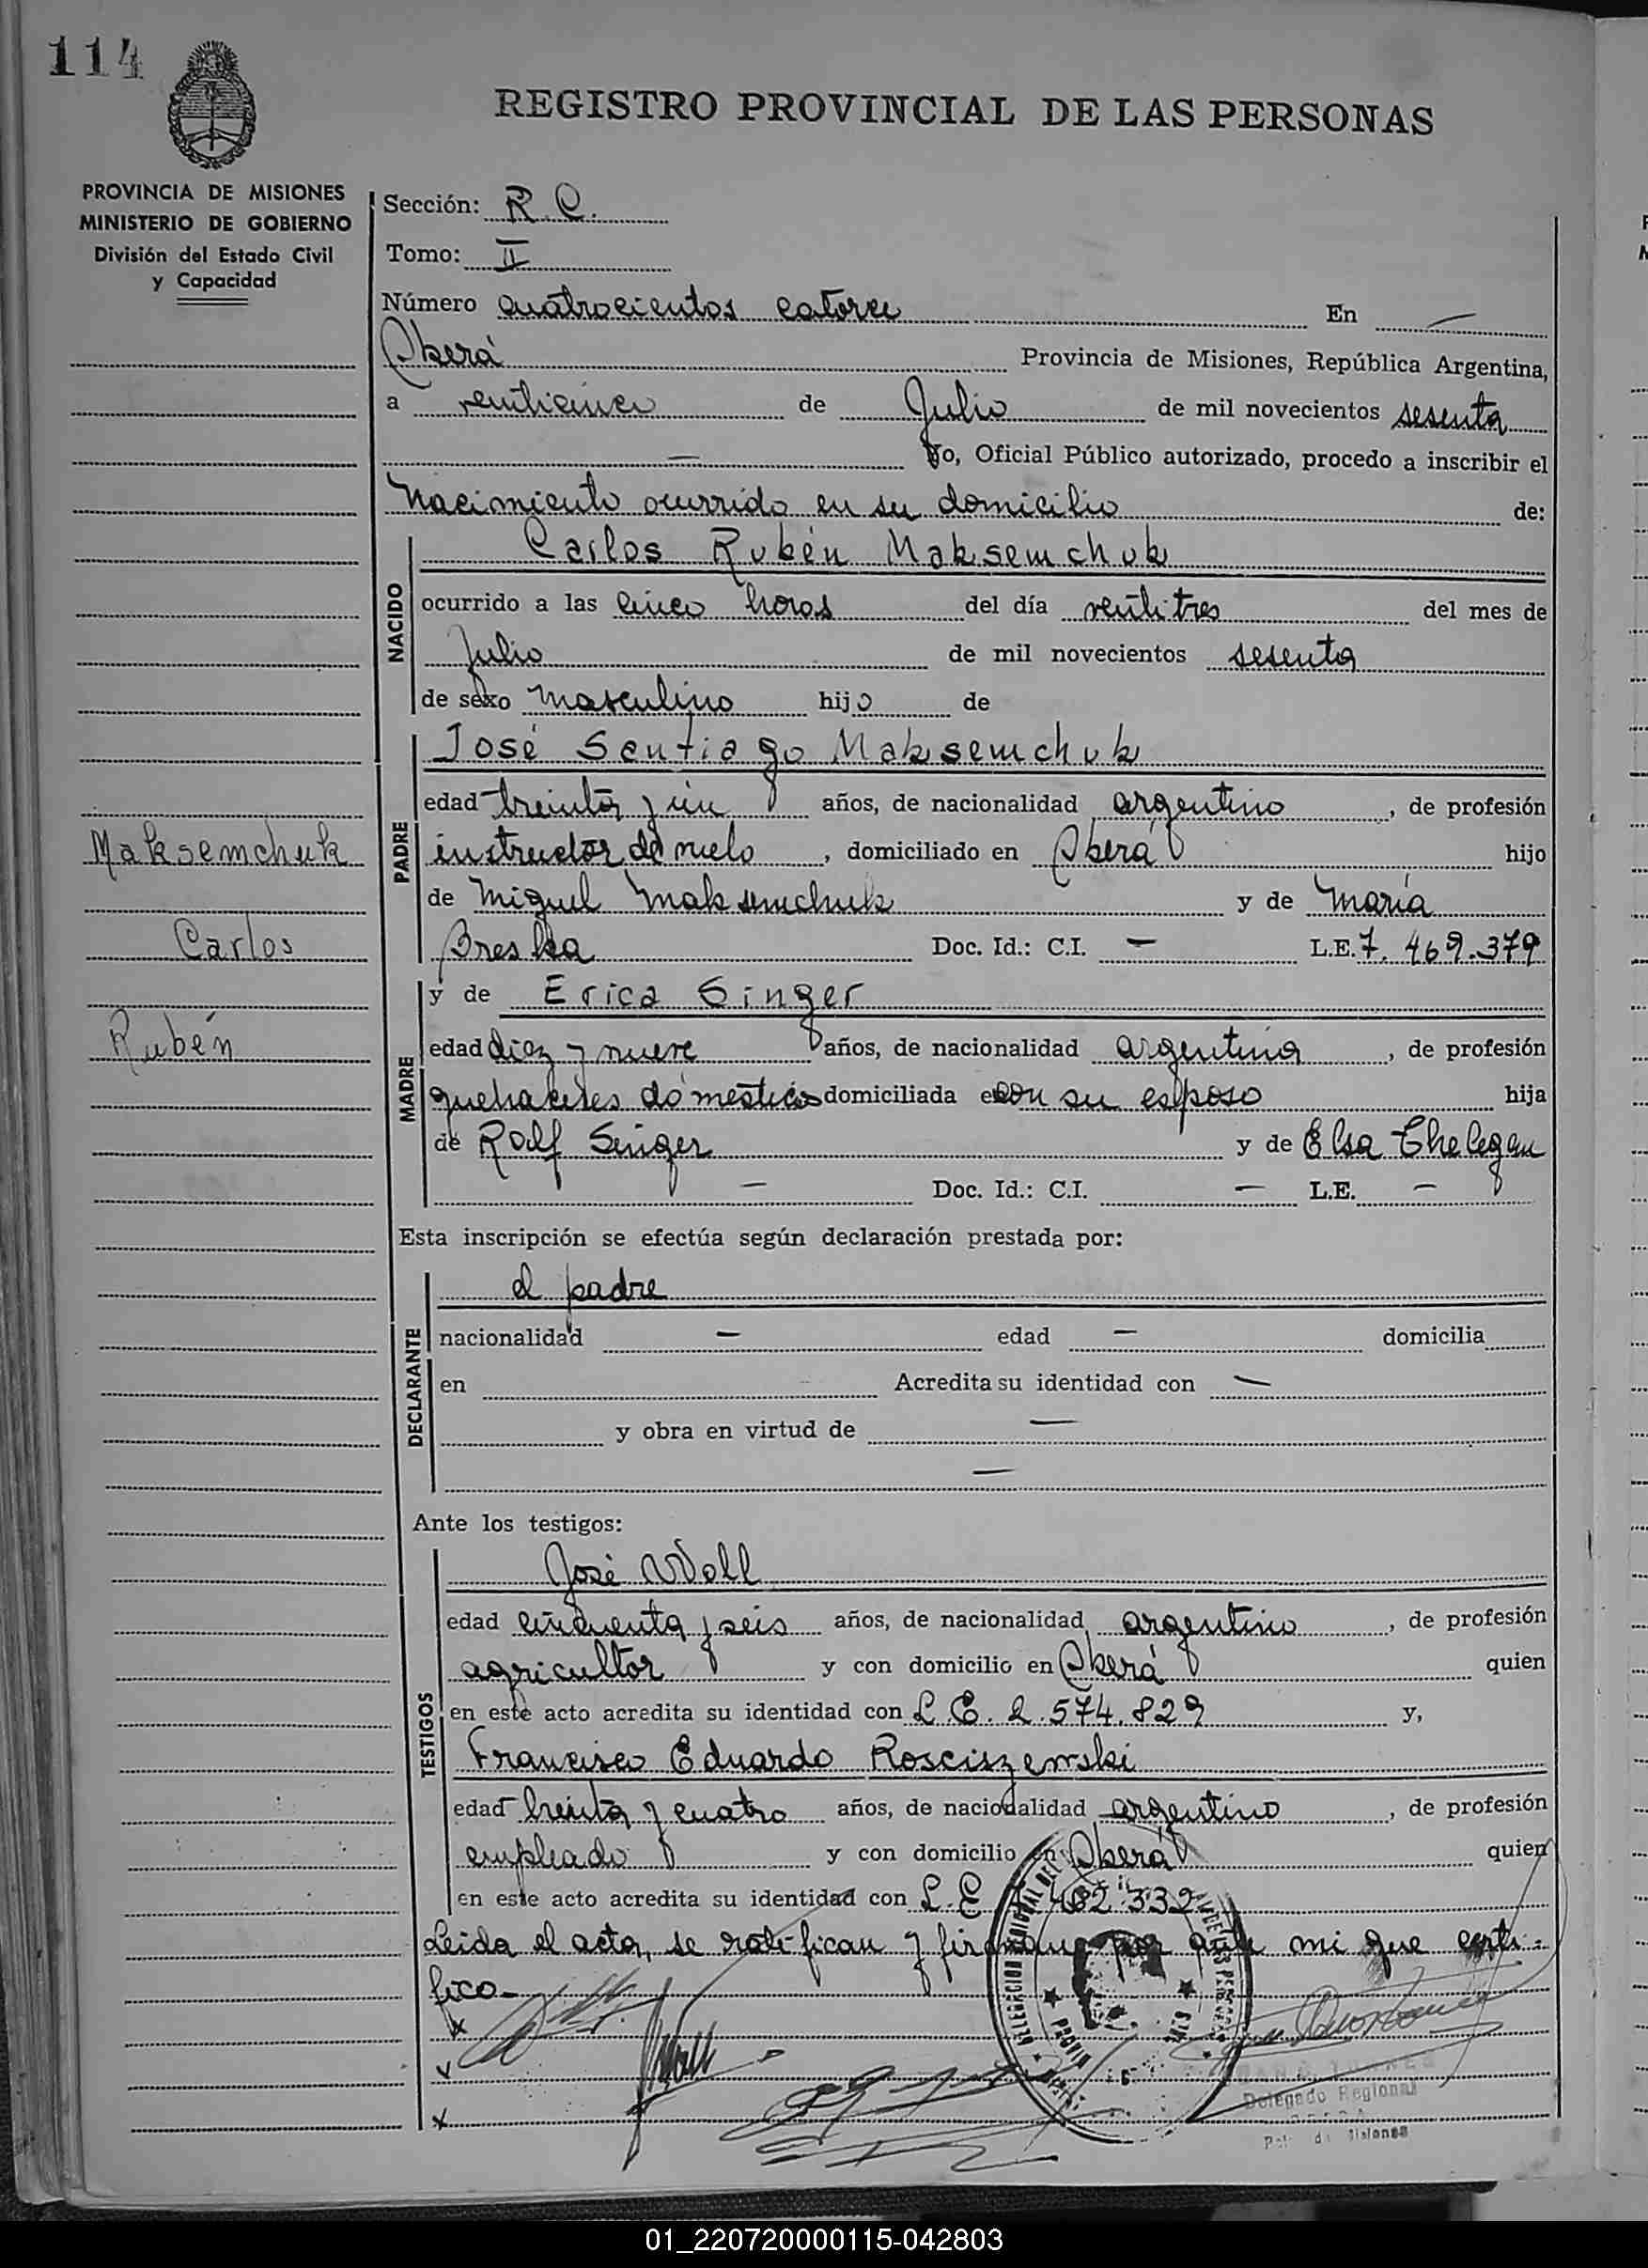 114
REGISTRO PROVINCIAL DE LAS PERSONAS
PROVINCIA DE MISIONES
MINISTERIO DE GOBIERNO
División del Estado Civil
y Capacidad
Sección: R.C.
Tomo: II
Número cuatrocientos catorce En —
Oberá Provincia de Misiones, República Argentina,
a veinticinco de Julio de mil novecientos sesenta
— Yo, Oficial Público autorizado, procedo a inscribir el
Nacimiento ocurrido en su domicilio de:
NACIDO
Carlos Rubén Maksemchuk
ocurrido a las cinco horas del día veintitres del mes de
Julio de mil novecientos sesenta
de sexo masculino hijo de
PADRE
José Santiago Maksemchuk
edad treinta y un años, de nacionalidad argentino, de profesión
instructor de vuelo, domiciliado en Oberá hijo
de Miguel Maksemchuk y de María
Breska Doc. Id.: C.I. — L.E. 7.469.379
Maksemchuk
Carlos
Rubén
MADRE
y de Erica Singer
edad diez y nueve años, de nacionalidad argentina, de profesión
quehaceres domésticos domiciliada con su esposo hija
de Rolf Singer y de Elsa Thelegan
— Doc. Id.: C.I. — L.E. —
Esta inscripción se efectúa según declaración prestada por:
DECLARANTE
el padre
nacionalidad — edad — domicilia
en Acredita su identidad con —
y obra en virtud de —
—
Ante los testigos:
TESTIGOS
José Woll
edad cincuenta y seis años, de nacionalidad argentino, de profesión
agricultor y con domicilio en Oberá quien
en este acto acredita su identidad con L.E. 2.574.829 y,
Francisco Eduardo Rosciszewski
edad treinta y cuatro años, de nacionalidad argentino, de profesión
empleado y con domicilio en Oberá quien
en este acto acredita su identidad con L.E. 402.332
Leida el acta, se ratifican y firman por ante mi que certi-
fico.-
Delegado Regional
01_220720000115-042803